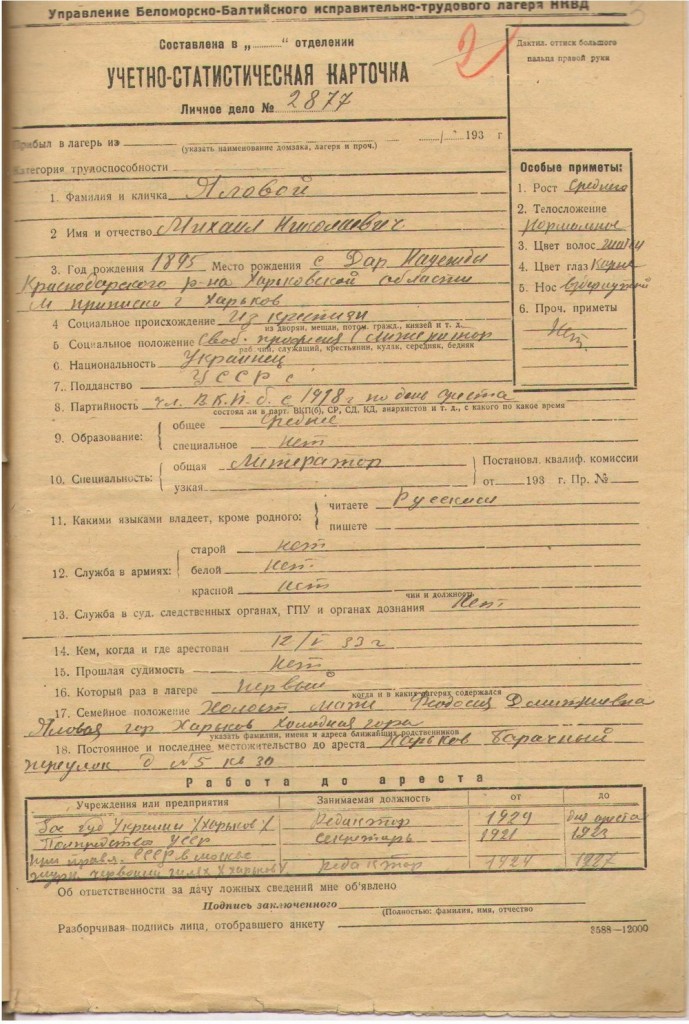 Управление Беломорско-Балтийского исправительно-трудового лагеря НКВД
Составлена в „............“ отделении
2
УЧЕТНО-СТАТИСТИЧЕСКАЯ КАРТОЧКА
Личное дело № 2877
Дактил. оттиск большого
пальца правой руки
Прибыл в лагерь из 193 г
(указать наименование домзака, лагеря и проч.)
Категория трудоспособности
Особые приметы:
1. Рост средний
2. Телосложение
нормальное
3. Цвет волос
4. Цвет глаз карие
5. Нос
6. Проч. приметы
Нет
1. Фамилия и кличка Яловой
2 Имя и отчество Михаил Николаевич
3. Год рождения 1895 Место рождения с Дар Надежды
Краснодарского р-на Харьковской области
М приписки г Харьков
4 Социальное происхождение Из крестьян
из дворян, мещан, потом. гражд., князей и т. д.
5. Социальное положение Своб. профессия
рабочий, служащий, крестьянин, кулак, середняк, бедняк
6. Национальность Украинец
7. Подданство УССР
8. Партийность чл. В.К.П.б. с 1918 г по день ареста
состоял ли в парт. ВКП(б), СР, СД, КД, анархистов и т. д., с какого по какое время
9. Образование: общее среднее
специальное нет
10. Специальность: общая Литератор
узкая
Постановл. квалиф. комиссии
от 193 г. Пр. №
11. Какими языками владеет, кроме родного: читаете Русским
пишете
12. Служба в армиях: старой нет
белой нет
красной нет
чин и должность
13. Служба в суд. следственных органах, ГПУ и органах дознания Нет
14. Кем, когда и где арестован 12/V 33 г
15. Прошлая судимость Нет
16. Который раз в лагере первый
когда и в каких лагерях содержался
17. Семейное положение Холост Мать Феодосия Дмитриевна
Яловая гор Харьков Холодная гора
указать фамилии, имена и адреса ближайших родственников
18. Постоянное и последнее местожительство до ареста Харьков Барачный
переулок д N5 кв 30
Работа до ареста
Учреждения или предприятия Занимаемая должность от до
Украины /Харьков/ редактор 1929 дня ареста
Полпредства УССР секретарь 1921 1923
при правл. СССР в Москве
журн. червоний шлях /Харьков/ редактор 1924 1927
Об ответственности за дачу ложных сведений мне об'явлено
Подпись заключенного
(Полностью: фамилия, имя, отчество
Разборчивая подпись лица, отобравшего анкету
3588—12000